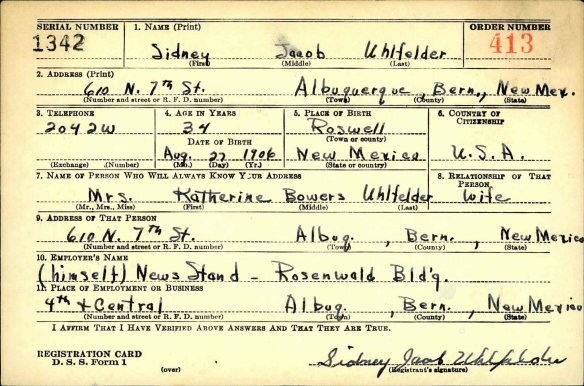 SERIAL NUMBER 1. NAME (Print) ORDER NUMBER
1342 Sidney Jacob Uhlfelder 413
(First) (Middle) (Last)
2. ADDRESS (Print)
610 N. 7th St. Albuquerque, Bern., New Mex.
(Number and street or R. F. D. number) (Town) (County) (State)
3. TELEPHONE 4. AGE IN YEARS 5. PLACE OF BIRTH 6. COUNTRY OF CITIZENSHIP
2042W 34 Roswell
DATE OF BIRTH (Town or county)
Aug. 27 1906 New Mexico U.S.A.
(Exchange) (Number) (Mo.) (Day) (Yr.) (State or country)
7. NAME OF PERSON WHO WILL ALWAYS KNOW YOUR ADDRESS 8. RELATIONSHIP OF THAT PERSON
Mrs. Katherine Bowers Uhlfelder Wife
(Mr., Mrs., Miss) (First) (Middle) (Last)
9. ADDRESS OF THAT PERSON
610 N. 7th St. Albuq., Bern., New Mexico
(Number and street or R. F. D. number) (Town) (County) (State)
10. EMPLOYER'S NAME
(himself) News Stand - Rosenwald Bld'g.
11. PLACE OF EMPLOYMENT OR BUSINESS
4th & Central Albuq., Bern., New Mexico
(Number and street or R. F. D. number) (Town) (County) (State)
I AFFIRM THAT I HAVE VERIFIED ABOVE ANSWERS AND THAT THEY ARE TRUE.
REGISTRATION CARD
D. S. S. Form 1 (over) Sidney Jacob Uhlfelder
(Registrant's signature)